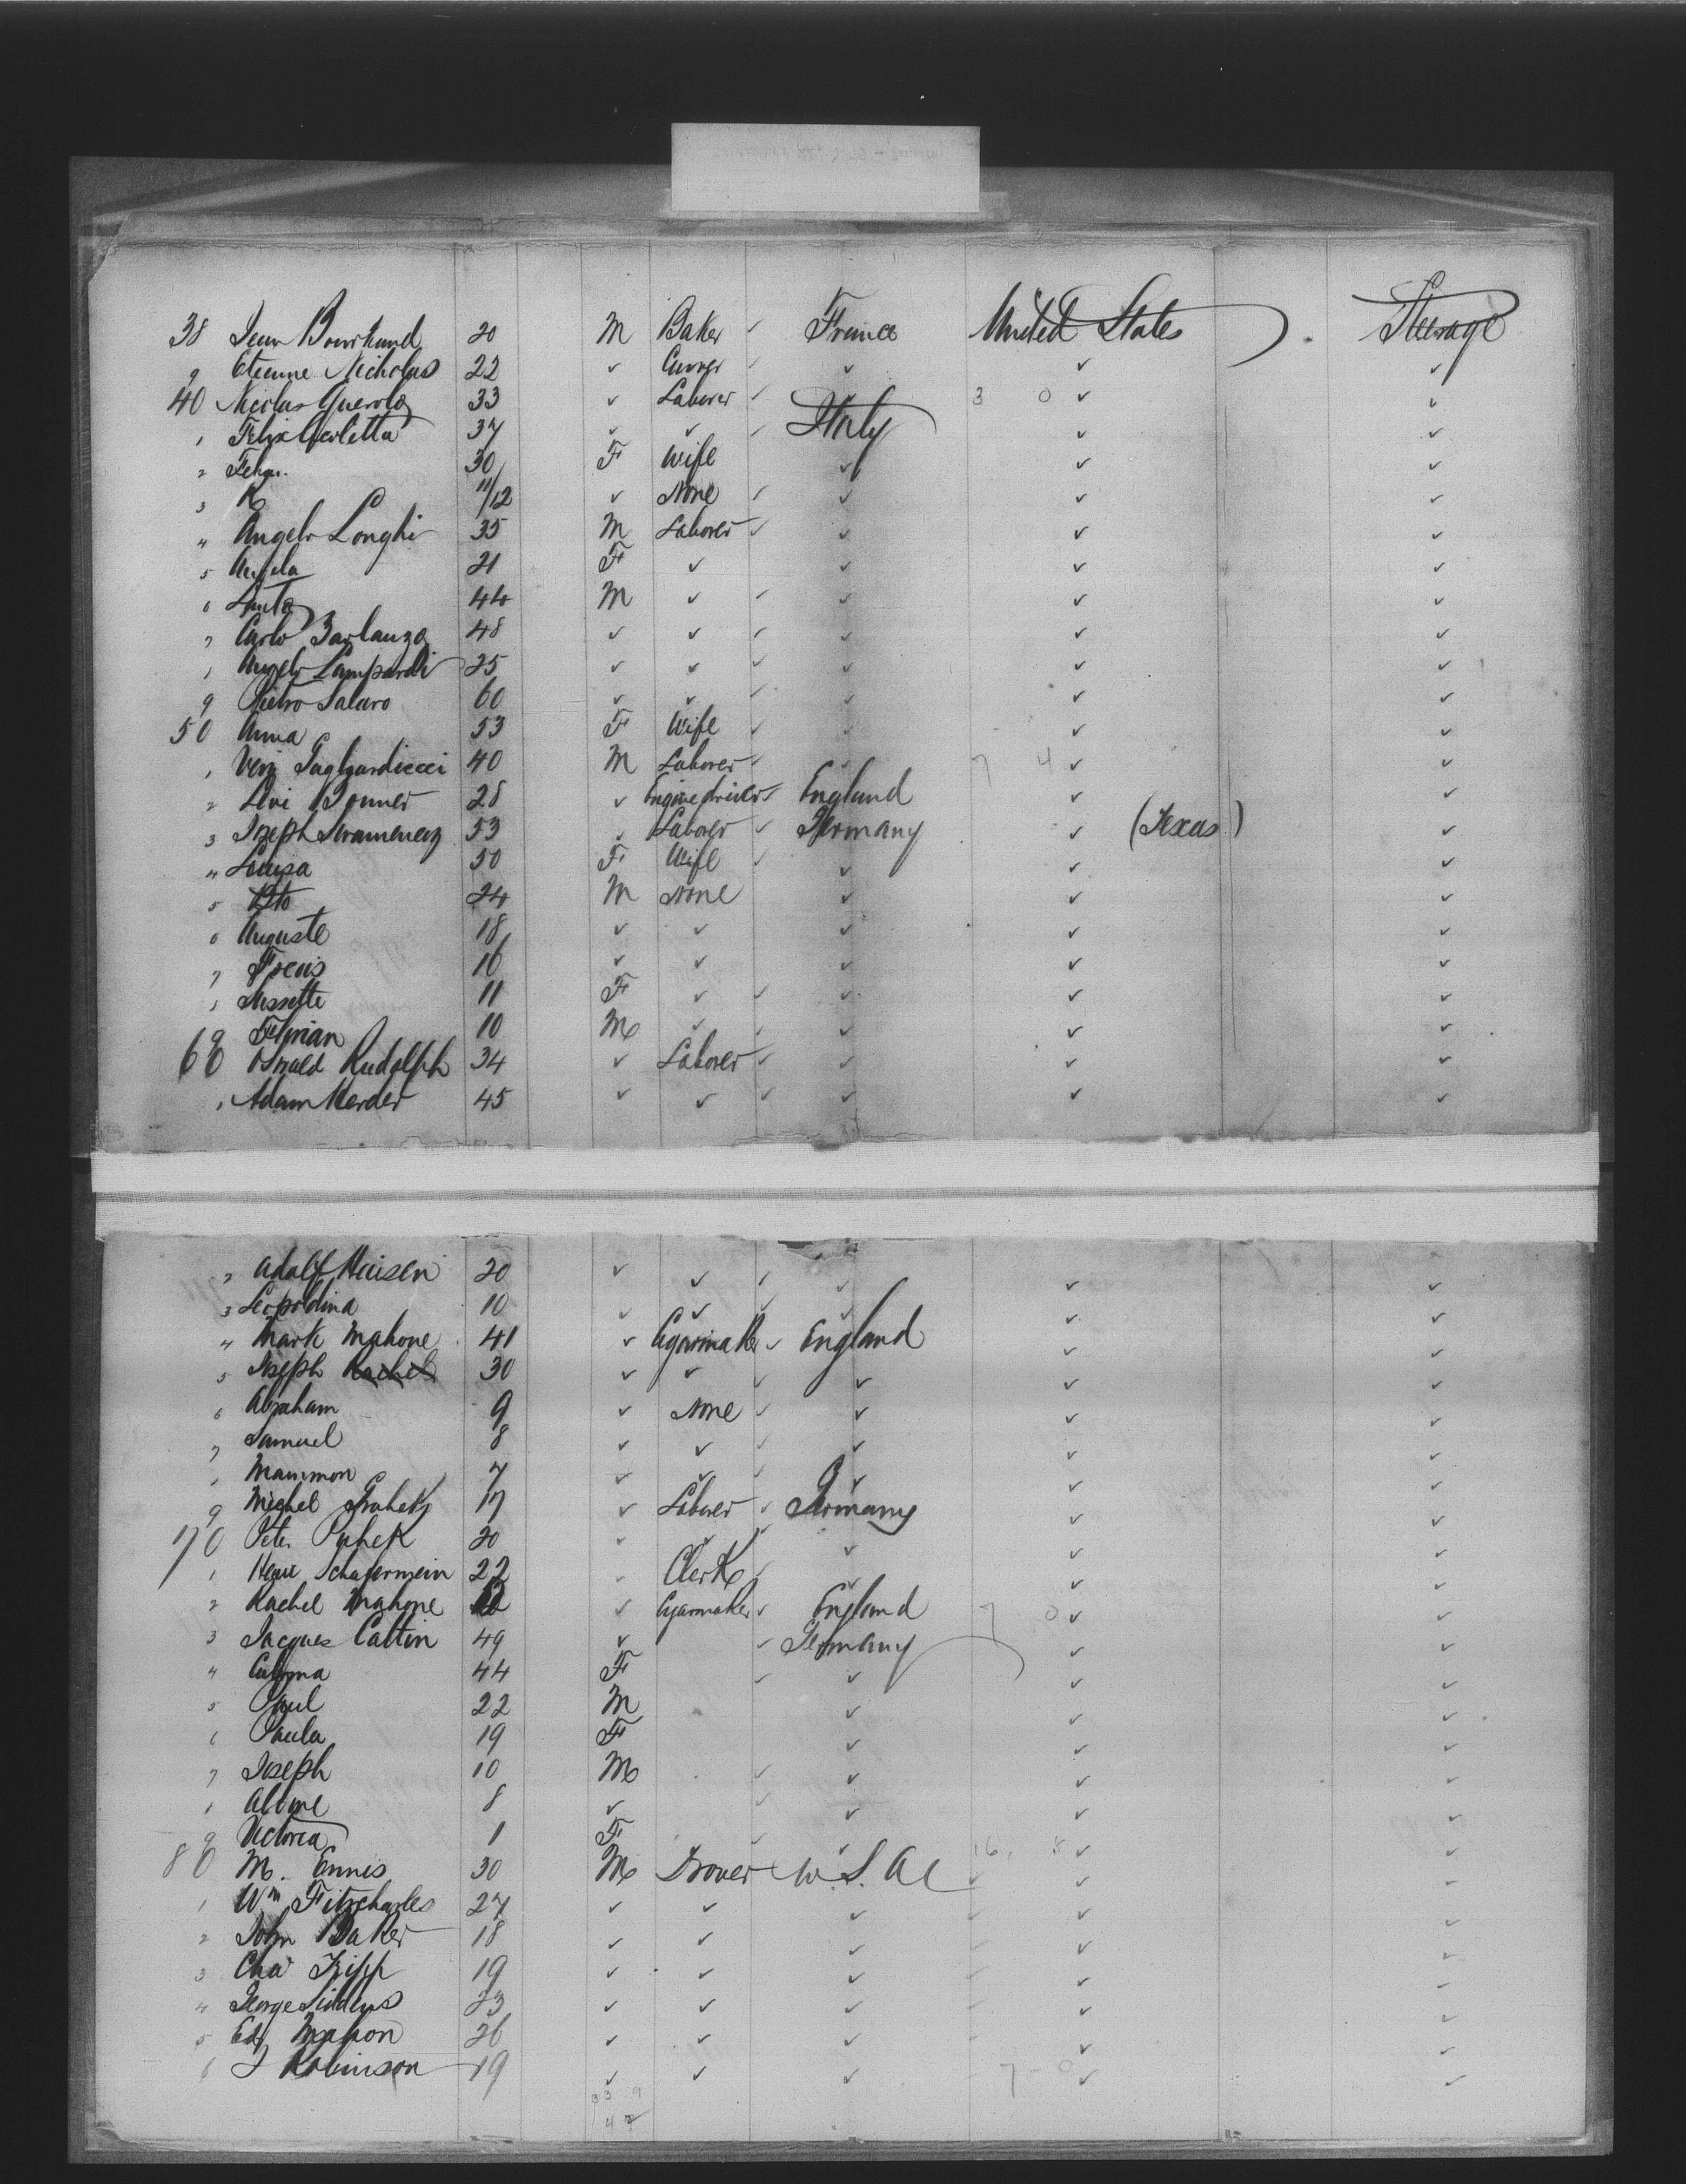 38 Jean 20 M Baker ✓ France United States Steerage
9 Etienne Nicholas 22 ✓ ✓ ✓ ✓ ✓
40 Nicolas 33 ✓ Laborer ✓ 3 0 ✓ ✓
1 Felix 37 ✓ ✓ ✓ Italy ✓ ✓
2 30 F Wife ✓ ✓ ✓
3 11/12 ✓ None ✓ ✓ ✓ ✓
" Angelo Longhi 35 M Laborer ✓ ✓ ✓ ✓
5 Angela 21 F ✓ ✓ ✓ ✓
6 44 M ✓ ✓ ✓ ✓ ✓
7 Carlo 48 ✓ ✓ ✓ ✓ ✓ ✓
1 Angelo Lampardi 25 ✓ ✓ ✓ ✓ ✓ ✓
9 Pietro Salaro 60 ✓ ✓ ✓ ✓ ✓ ✓
50 Anna 53 F Wife ✓ ✓ ✓ ✓
1 40 M Laborer ✓ ✓ 7 4 ✓ ✓
2 Levi Bonner 28 ✓ Engine driver ✓ England ✓ ✓
3 Joseph 53 ✓ Laborer ✓ Germany ✓ (Texas) ✓
" Louisa 50 F Wife ✓ ✓ ✓ ✓
5 24 M None ✓ ✓ ✓
6 Auguste 18 ✓ ✓ ✓ ✓ ✓
7 16 ✓ ✓ ✓ ✓ ✓
1 11 F ✓ ✓ ✓ ✓ ✓
9 Florian 10 M ✓ ✓ ✓ ✓ ✓
60 Oswald Rudolph 34 ✓ Laborer ✓ ✓ ✓ ✓
1 Adam Merder 45 ✓ ✓ ✓ ✓ ✓ ✓
2 Adolf 20 ✓ ✓ ✓ ✓ ✓ ✓
3 Leopoldina 10 ✓ ✓ ✓ ✓ ✓ ✓
" Mark Mahone 41 ✓ Cigarmaker ✓ England ✓ ✓
5 Joseph Rachel 30 ✓ ✓ ✓ ✓ ✓ ✓
6 Abraham 9 ✓ None ✓ ✓ ✓ ✓
7 Samuel 8 ✓ ✓ ✓ ✓ ✓ ✓
1 Mammon 7 ✓ ✓ ✓ ✓ ✓ ✓
9 Michel 17 ✓ Laborer ✓ Germany ✓ ✓
70 Peter 20 ✓ ✓ ✓ ✓ ✓ ✓
1 Schafermein 22 Clerk ✓ ✓ ✓ ✓
2 Rachel Mahone ✓ Cigarmaker ✓ England 7 0 ✓ ✓
3 Jacques Cattin 49 ✓ ✓ Germany ✓ ✓
" 44 F ✓ ✓ ✓ ✓
5 Paul 22 M ✓ ✓ ✓
6 Paula 19 F ✓ ✓ ✓
7 Joseph 10 M ✓ ✓ ✓ ✓
1 8 ✓ ✓ ✓ ✓ ✓
9 Victoria 1 F ✓ ✓ ✓ ✓
80 M. Ennis 30 M Drover U. S. A ✓ ✓
1 Wm Fitzcharles 27 ✓ ✓ ✓ ✓ ✓
2 John Baker 18 ✓ ✓ ✓ ✓ ✓
3 Chas Tripp 19 ✓ ✓ ✓ ✓
4 George Siddens 23 ✓ ✓ ✓ ✓ ✓
5 Edw Mahon 26 ✓ ✓ ✓ ✓ ✓
6 J Robinson 19 ✓ ✓ ✓ 7-0 ✓ ✓